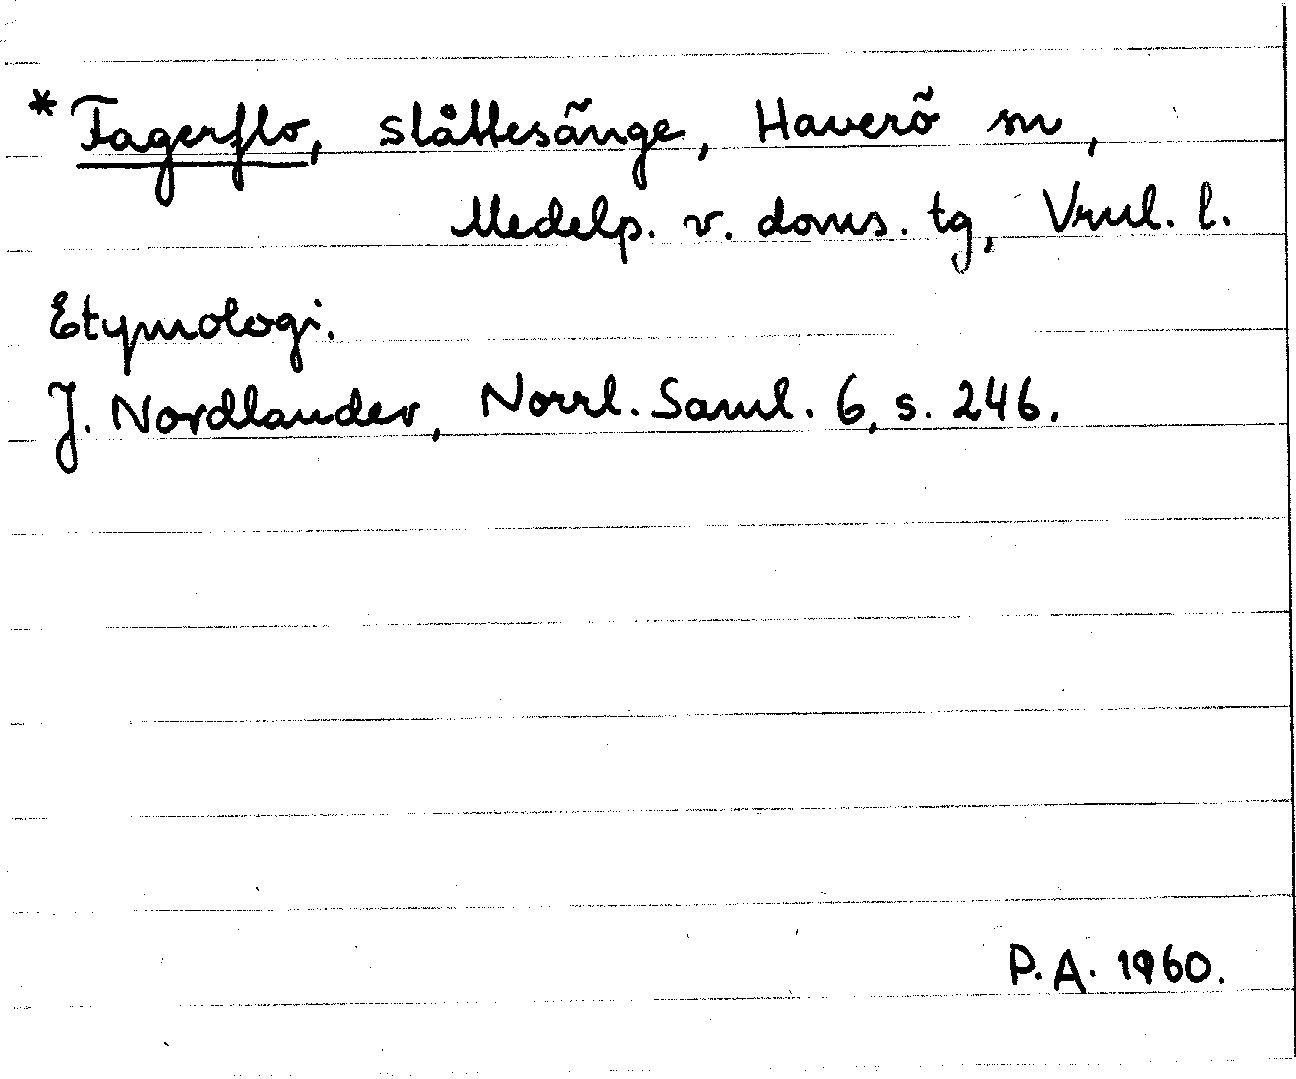 * Fagerflo, slåttesänge, Haverö sn,
Medelp. v. doms. tg, Vrnl. l.
Etymologi.
J. Nordlander, Norrl. Saml. 6, s. 246.
P.A. 1960.